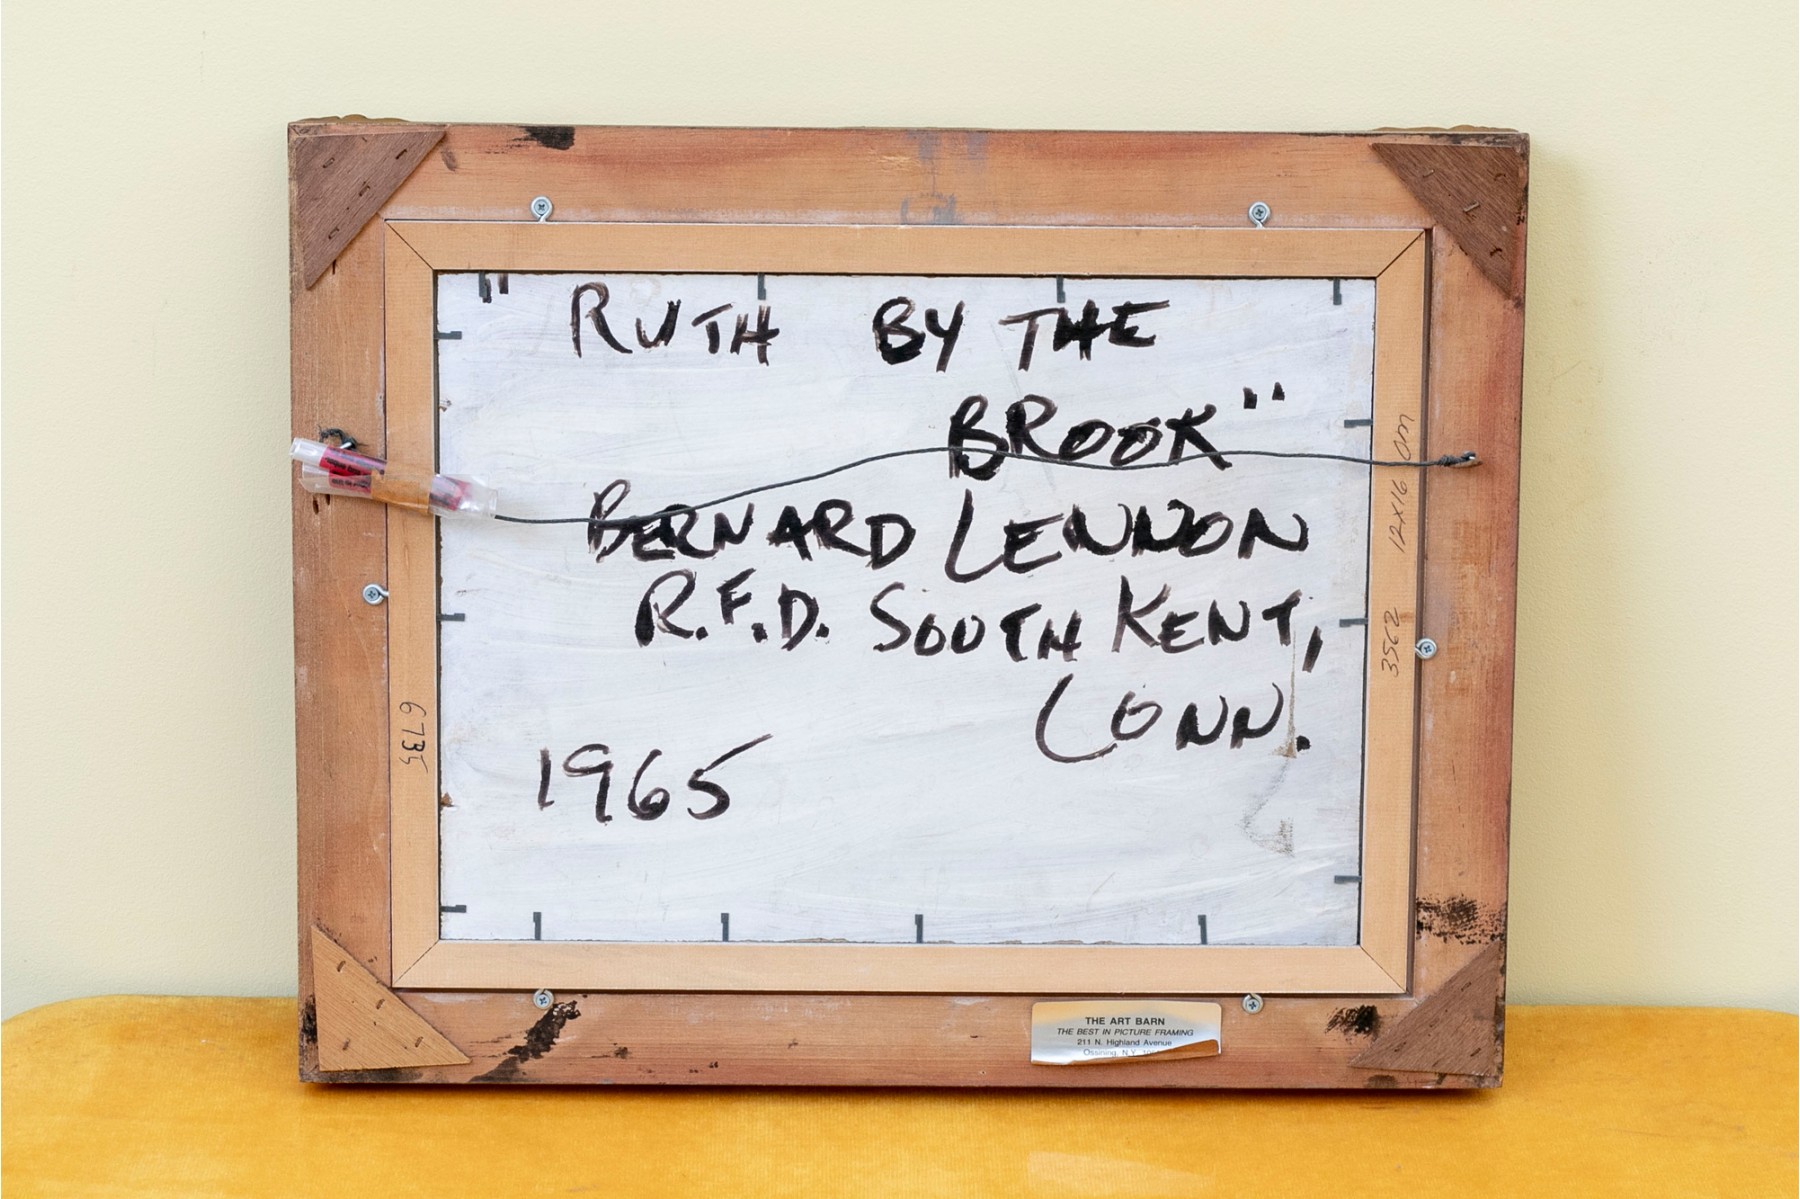 "RUTH BY THE
BROOK"
BERNARD LENNON
R.F.D. SOUTH KENT,
CONN.
1965
6735
3562 12X16 om
THE ART BARN
THE BEST IN PICTURE FRAMING
211 N. Highland Avenue
Ossining, N.Y.